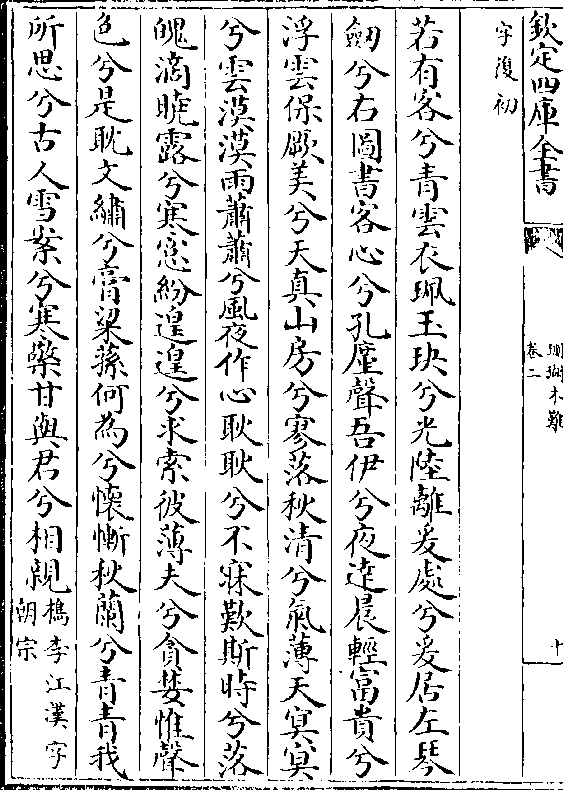 欽定四庫全書
珊瑚木難
卷二
十
字復初
若有客兮青雲衣珮玉玦兮光陸離爰處兮爰居左琴
劒兮右圖書客心兮孔塵聲吾伊兮夜達晨輕富貴兮
浮雲保厥美兮天真山房兮寥落秋清兮氣薄天寞寞
兮雲漠漠雨蕭蕭兮風夜作心耿耿兮不寐歎斯時兮落
魄滴曉露兮寒窓紛遑遑兮求索彼薄夫兮貪婪惟聲
色兮是耽文繡兮膏粱蓀何為兮懷慚秋蘭兮青青我
所思兮古人雪案兮寒虀甘與君兮相親
檇李江漢字
朝宗